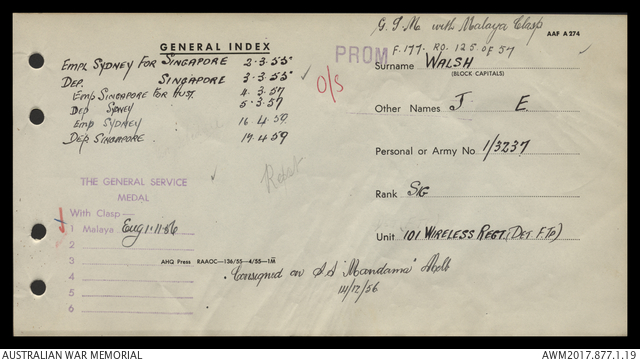 G.S.M. with Malaya Clasp
AAF A 274
GENERAL INDEX
PROM
F.177. RO. 125 OF 57
Surname WALSH
(BLOCK CAPITALS)
EMPL SYDNEY FOR SINGAPORE 2·3·55
DEP. SINGAPORE 3·3·55
O/S
EMP SINGAPORE FOR AUST. 4·3·57
DEP SYDNEY 5·3·57
EMP SYDNEY 16 4·59
DEP. SINGAPORE 17·4·59
Other Names J E.
Personal or Army No. 1/3237
THE GENERAL SERVICE
MEDAL
With Clasp—
1 Malaya Eng 1·11·56
2
3
4
5
6
Rank SIG
Unit 101 WIRELESS REGT. (DET F.TP)
AHQ Press RAAOC—136/55—4/55—1M
Consigned on S.S "Mandama" Melb
14/12/56
AUSTRALIAN WAR MEMORIAL
AWM2017.877.1.19